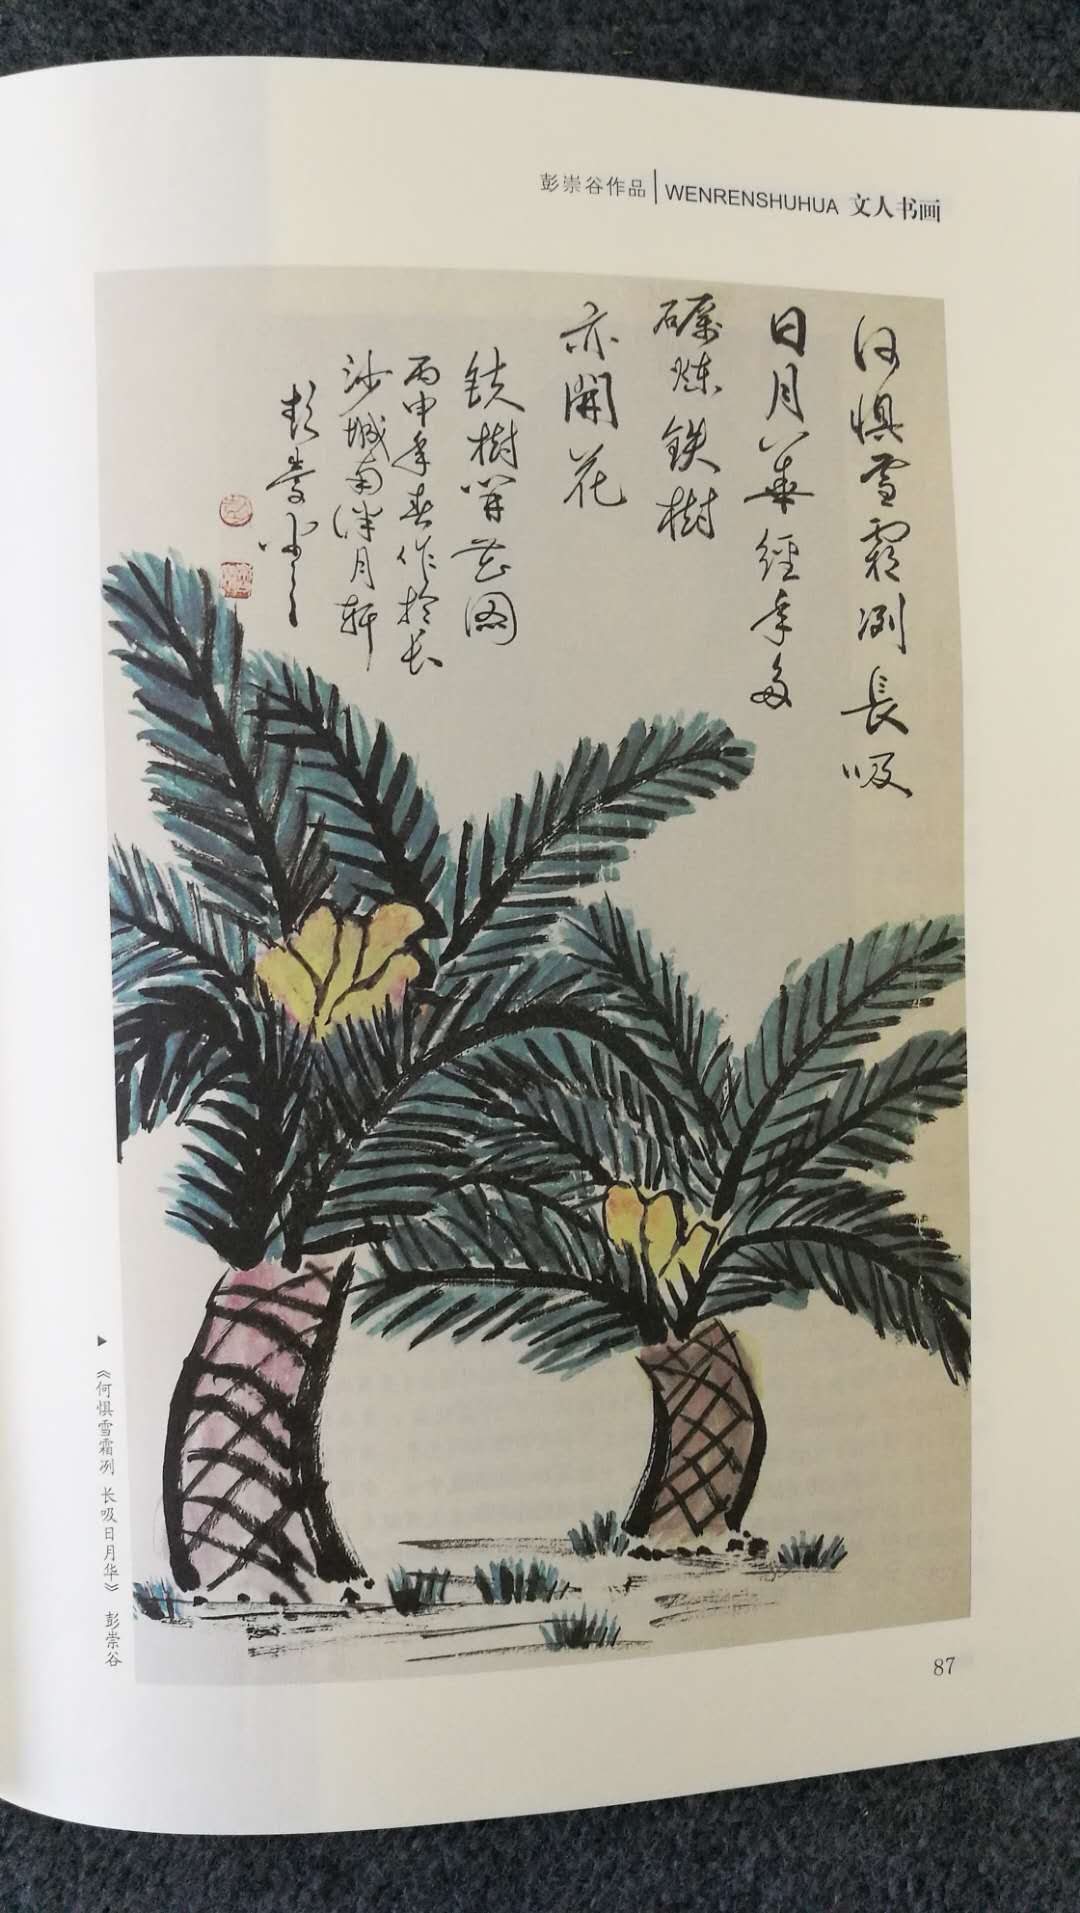 彭崇谷作品 WENRENSHUHUA 文人书画
何惧雪霜冽長吸
日月華經年多
礪炼铁樹
亦開花
铁樹开花图
丙申年春作於长
沙城南泮月轩
彭崇谷
《何惧雪霜冽 长吸日月华》 彭崇谷
87